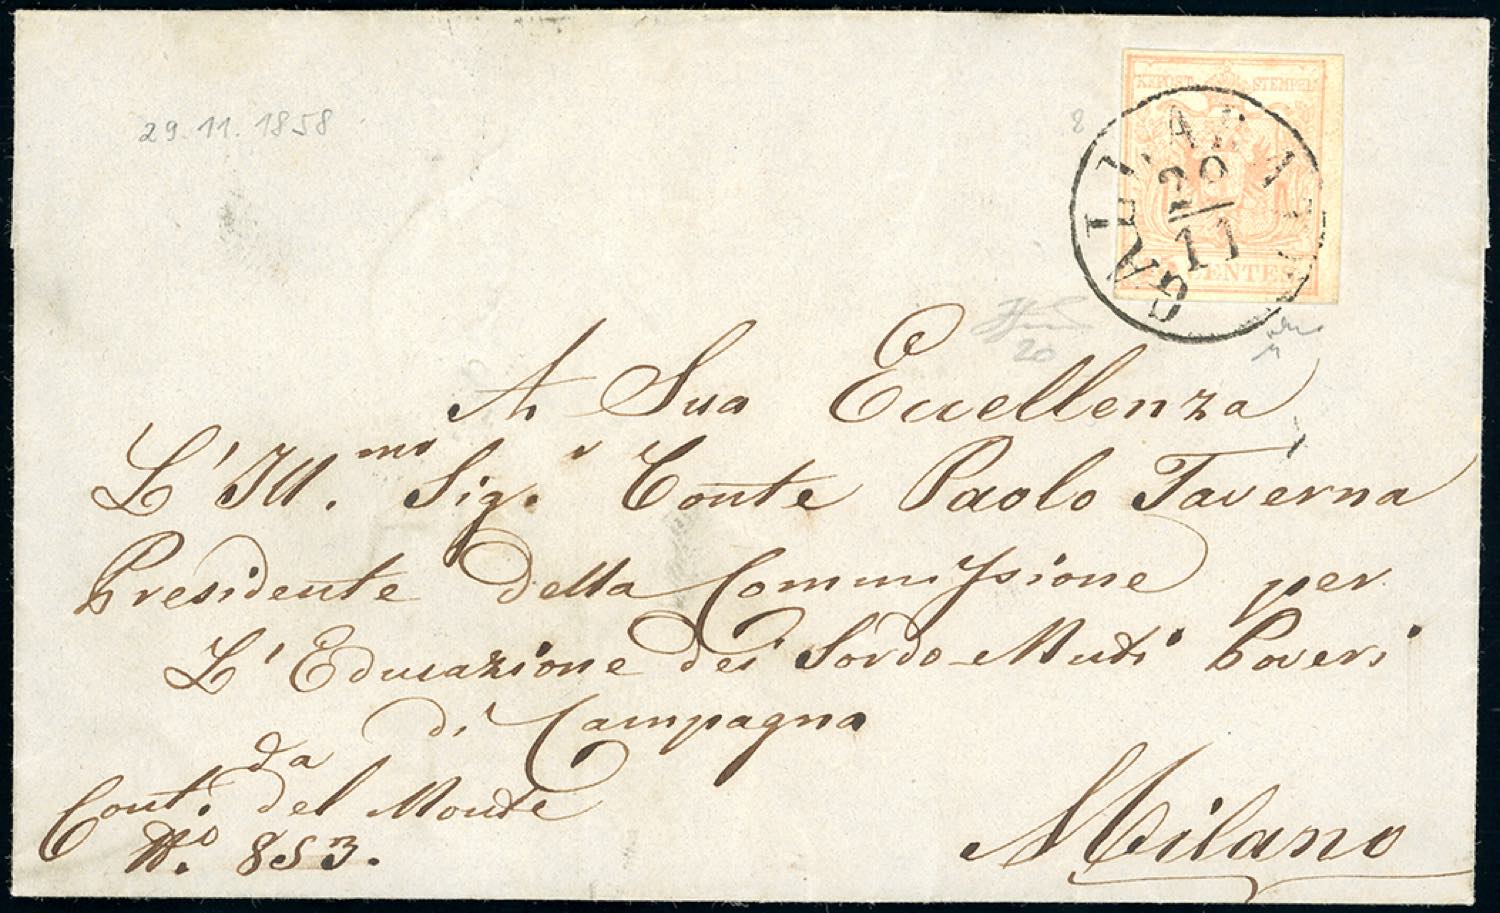 29.11.1858
8
KKPOST STEMPEL
GALLARATE
29
11
CENTES
20
A Sua Eccellenza
L'Ill.mo Sig.r Conte Paolo Taverna
Presidente della Commissione per
L'Educazione dei Sordo-Muti Poveri
di Campagna
da
del Monte
N.o 853.
Milano